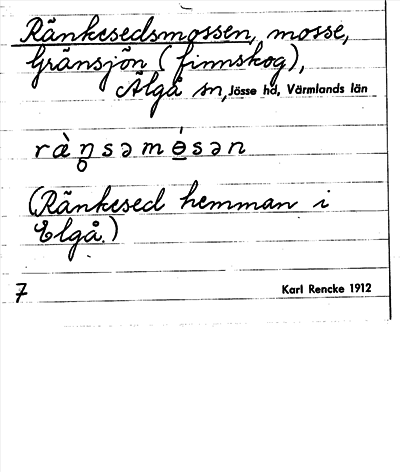 Ränkesedsmossen, mosse,
Gränsjön (finnskog),
Älgå sn, Jösse hd, Värmlands län
ràŋ̥səmösən
(Ränkesed hemman i
Elgå.)
7
Karl Rencke 1912